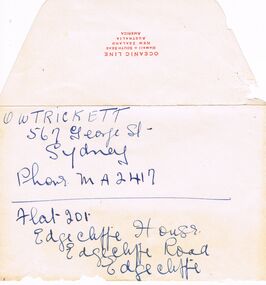 OCEANIC LINE
HAWAII • SOUTH SEAS
NEW ZEALAND
AUSTRALIA
AMERICA
O W TRICKETT
567 George St.
Sydney
Phone MA2417
Flat 201
Edgecliffe House
Edgecliffe Road
Edgecliffe